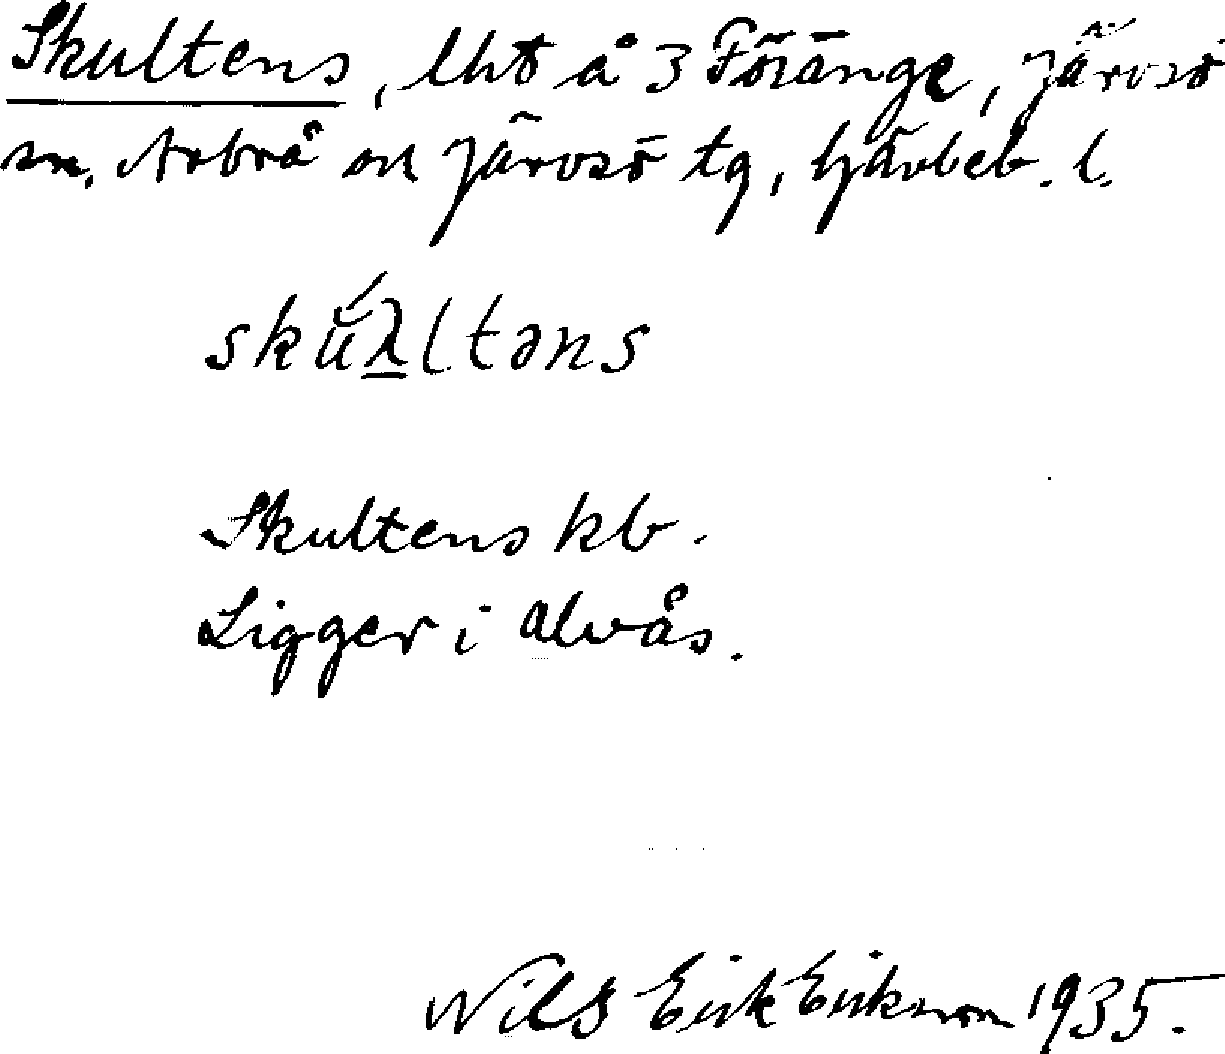 Skultens, lht å 3 Föränge, Järvsö
sn. Arbrå och Järvsö tg, Gävleb. l.
skúltəns
Skultens kb.
Ligger i Alvås.
Nils Erik Eriksson 1935.